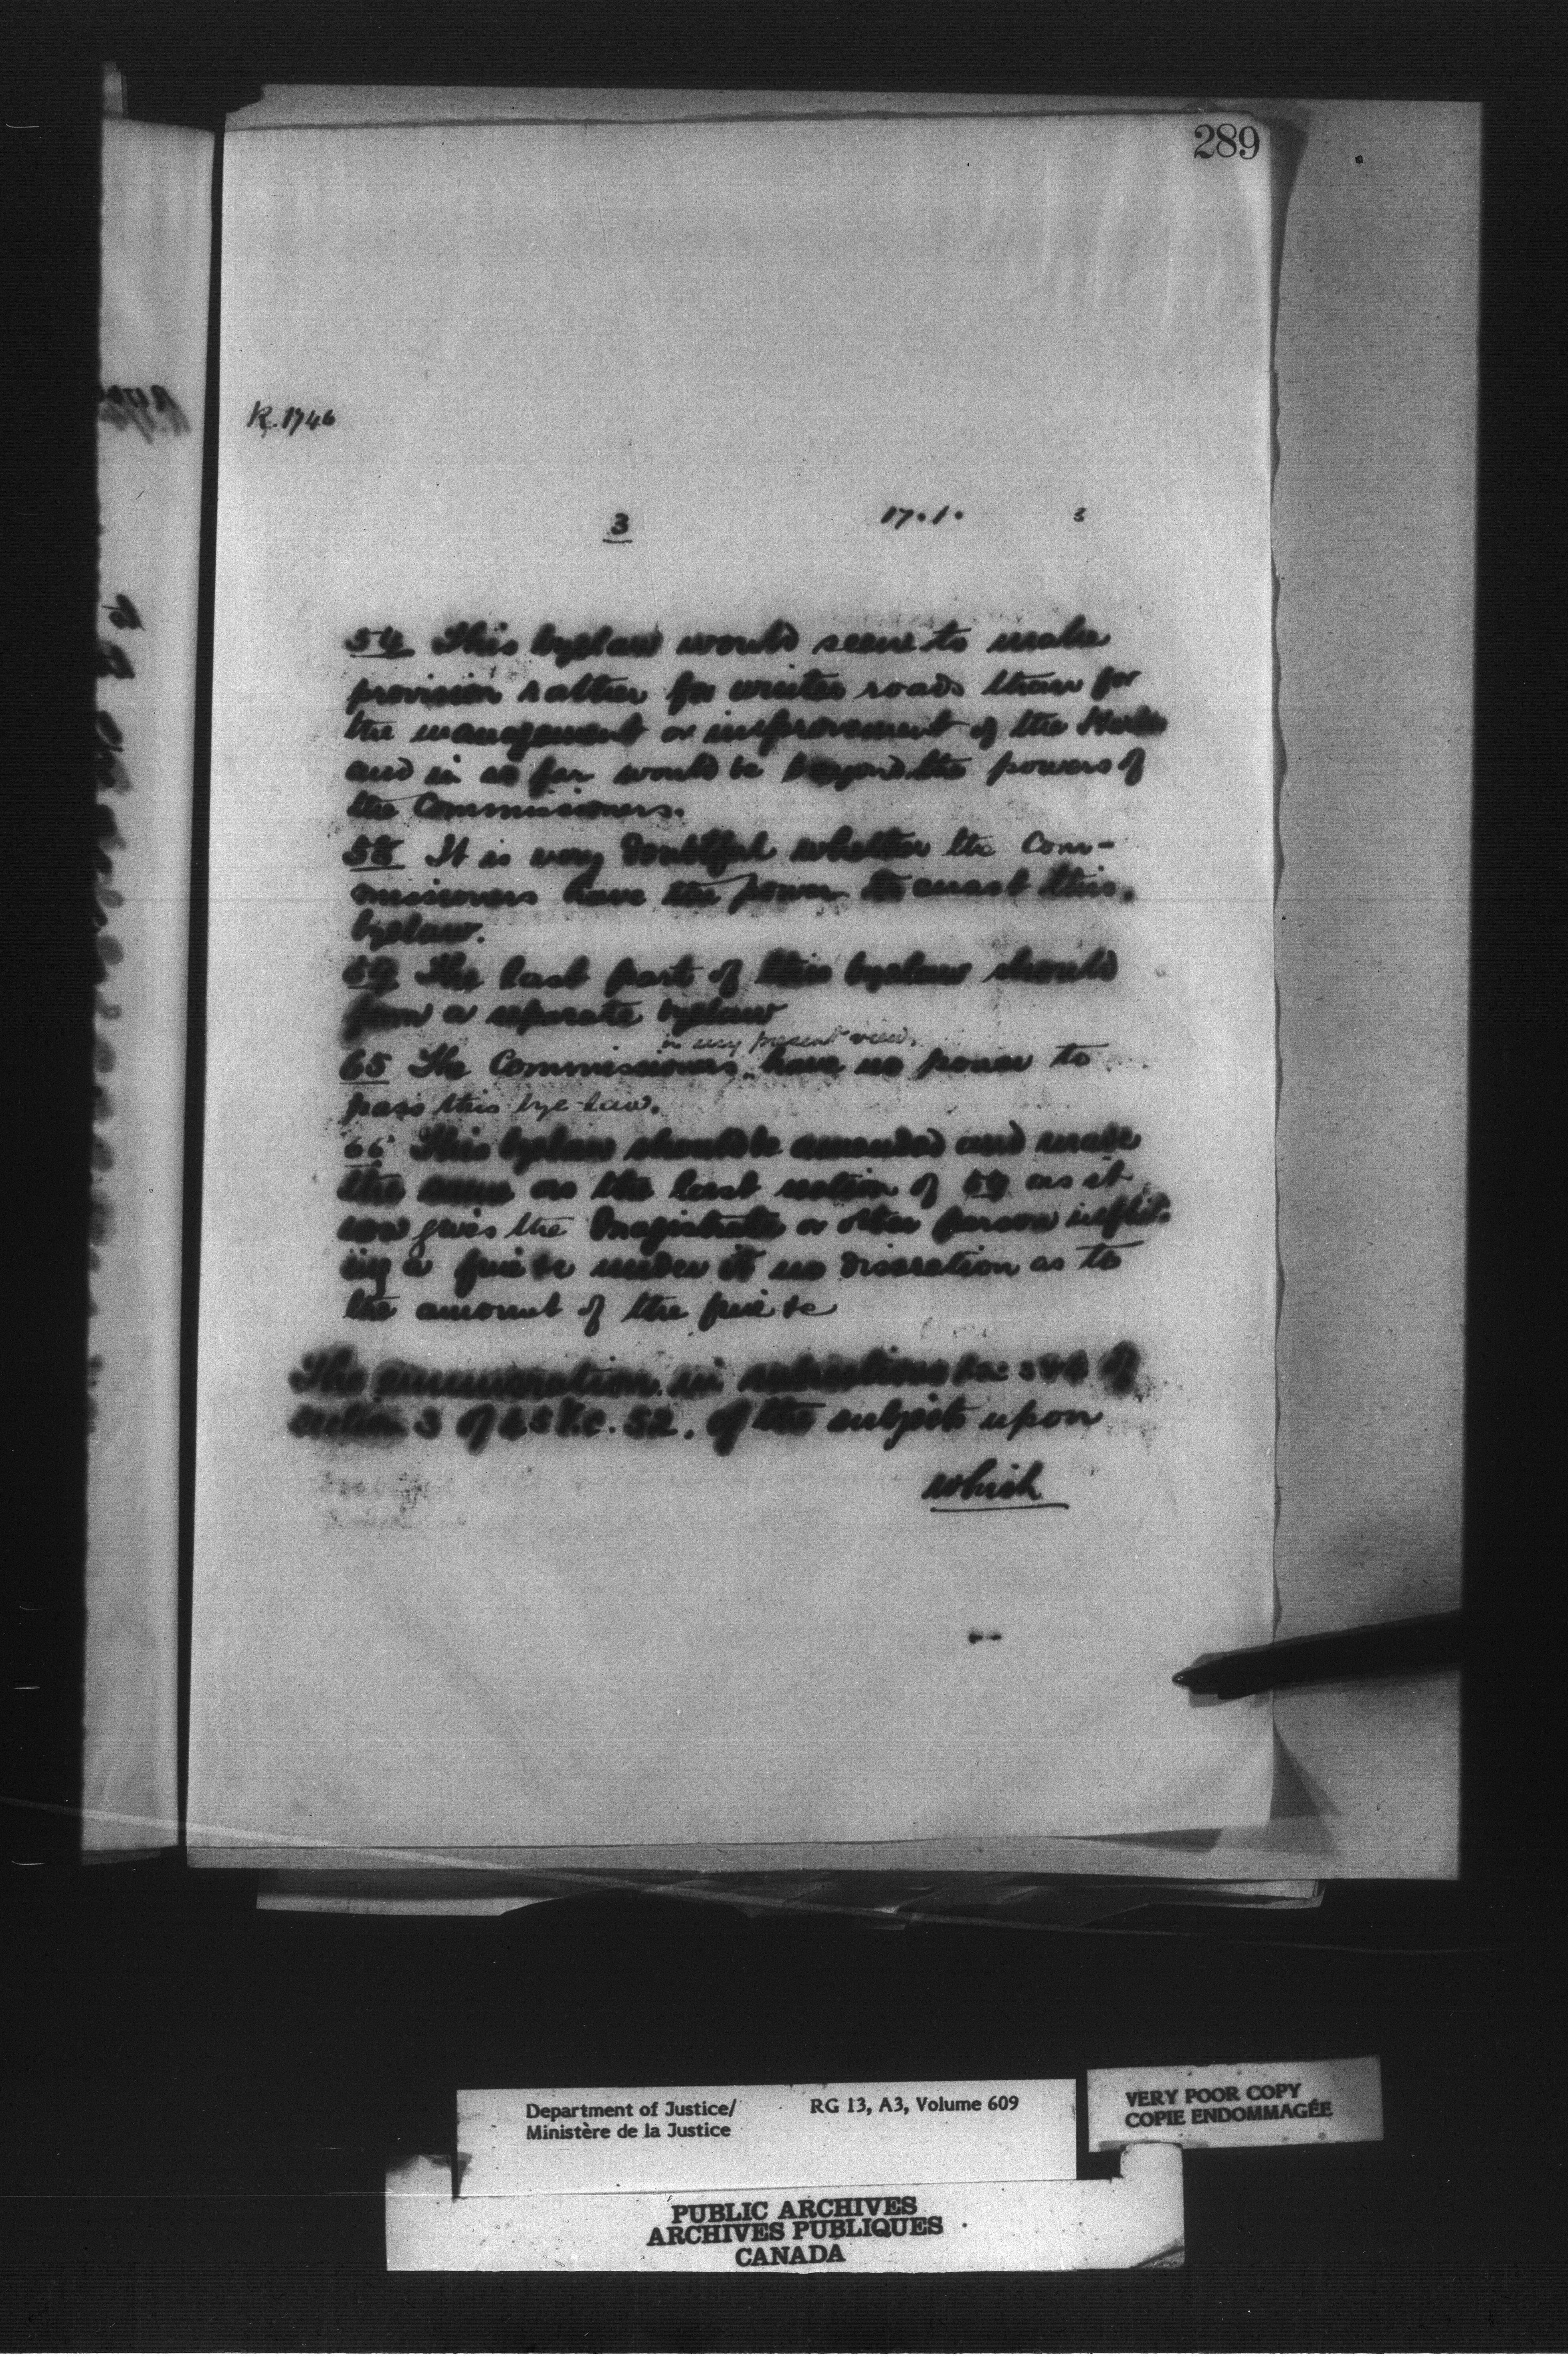 289
R. 1746
3 17.1. 3
54 This byelaw would seem to make
provision rather for winter roads than for
the management or improvement of the
and in so far would be beyond the powers of
the Commissioners.
58 It is very doubtful whether the Com-
missioners have the power to enact this
byelaw.
59 The last part of this byelaw should
form a separate byelaw
in my present view,
65 The Commissioners have no power to
pass this bye-law.
66 This byelaw should be amended and made
the same as the last section of 59 as it
now gives the Magistrate or other person inflict-
ing a fine &c under it no discretion as to
the amount of the fine &c
The enumeration in subsections of
section 3 of c. 52. of the subjects upon
which
Department of Justice/ RG 13, A3, Volume 609
Ministère de la Justice
VERY POOR COPY
COPIE ENDOMMAGÉE
PUBLIC ARCHIVES
ARCHIVES PUBLIQUES
CANADA